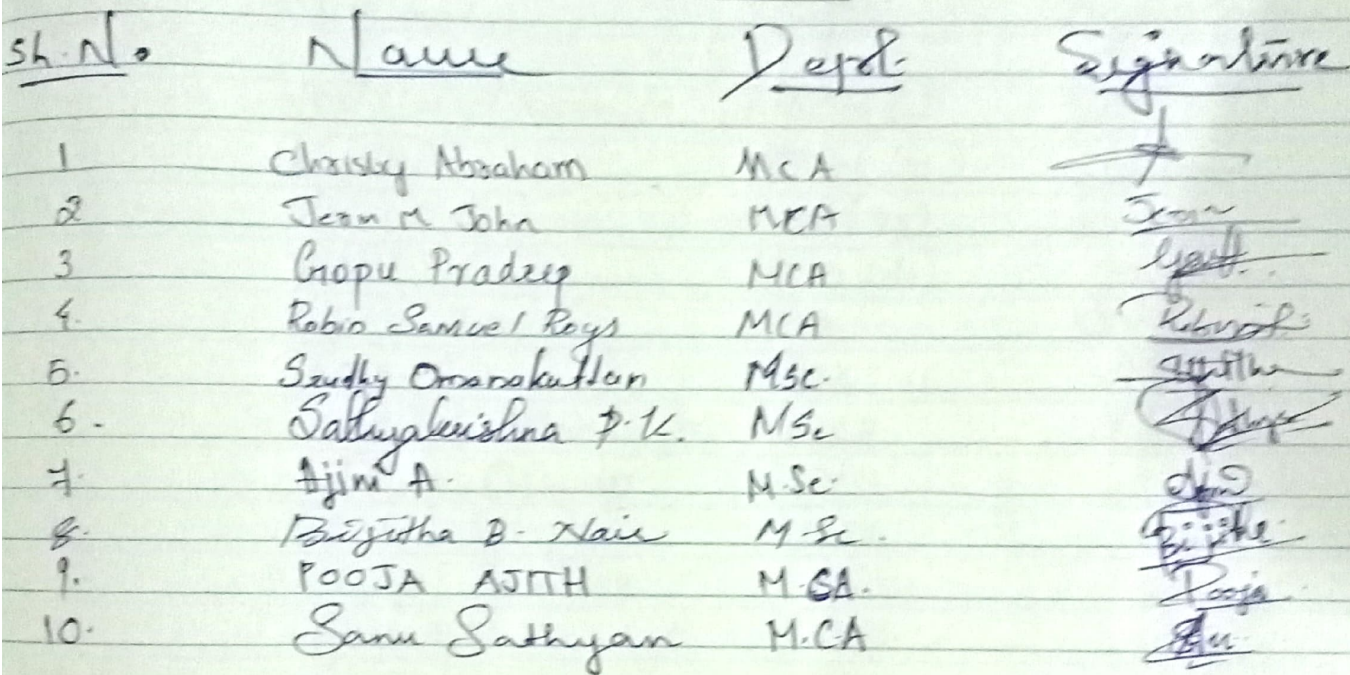 Sh. No. Name Dept. Signature
1 Chrisby Abraham MCA
2 Jeon M John MCA Jeon
3 Gopu Pradeep MCA
4. Robin Samuel Roys MCA
5. Omanakuttan Msc.
6. Sathyakrishna P.K. MSc
7. Ajim A. M.Sc.
8. Brijitha B. Nair M Sc. Brijitha
9. POOJA AJITH M.CA. Pooja
10. Sanu Sathyan M.CA